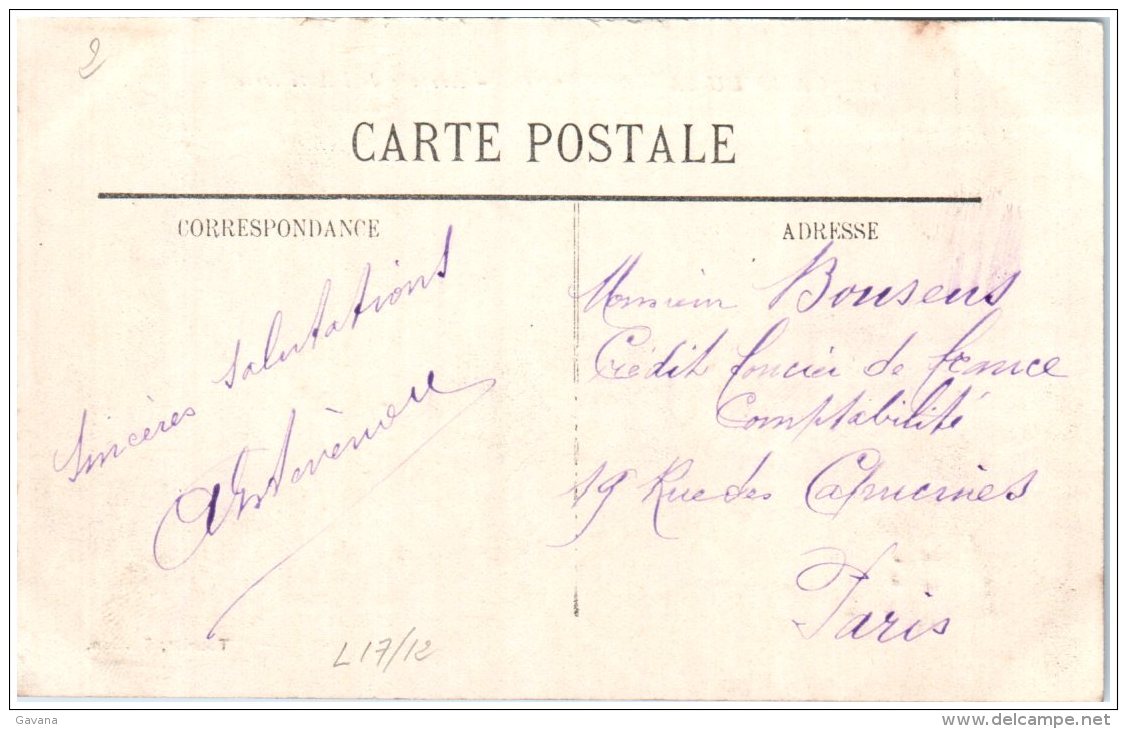 2
CARTE POSTALE
CORRESPONDANCE
Sincères salutations
ADRESSE
Monsieur Bousens
Crédit foncier de france
Comptabilité
19 Rue des Capucines
Paris
L17/12
Gavana
delcampe.net